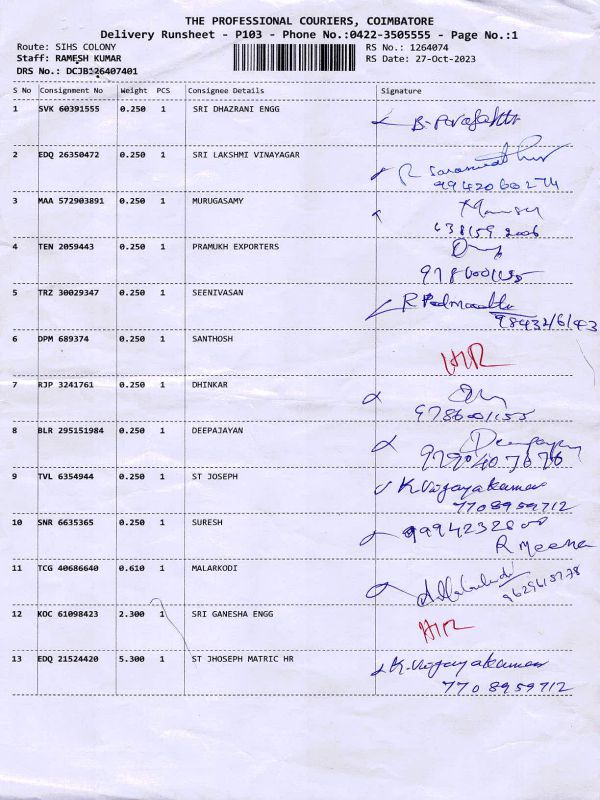 THE PROFESSIONAL COURIERS, COIMBATORE
Delivery Runsheet - P103 - Phone No.:0422-3505555 - Page No.:1
Route: SIHS COLONY RS No.: 1264074
Staff: RAMESH KUMAR RS Date: 27-Oct-2023
DRS No.: DCJB126407401
S No Consignment No Weight PCS Consignee Details Signature
1 SVK 60391555 0.250 1 SRI DHAZRANI ENGG
2 EDQ 26350472 0.250 1 SRI LAKSHMI VINAYAGAR
9942060274
3 MAA 572903891 0.250 1 MURUGASAMY
4 TEN 2059443 0.250 1 PRAMUKH EXPORTERS
5 TRZ 30029347 0.250 1 SEENIVASAN
6 DPM 689374 0.250 1 SANTHOSH
7 RJP 3241761 0.250 1 DHINKAR
9786001155
8 BLR 295151984 0.250 1 DEEPAJAYAN
9 TVL 6354944 0.250 1 ST JOSEPH K.Vijayakumar
7708959712
10 SNR 6635365 0.250 1 SURESH
R Meena
11 TCG 40686640 0.610 1 MALARKODI
12 KOC 61098423 2.300 1 SRI GANESHA ENGG
13 EDQ 21524420 5.300 1 ST JHOSEPH MATRIC HR K.Vijayakumar
7708959712